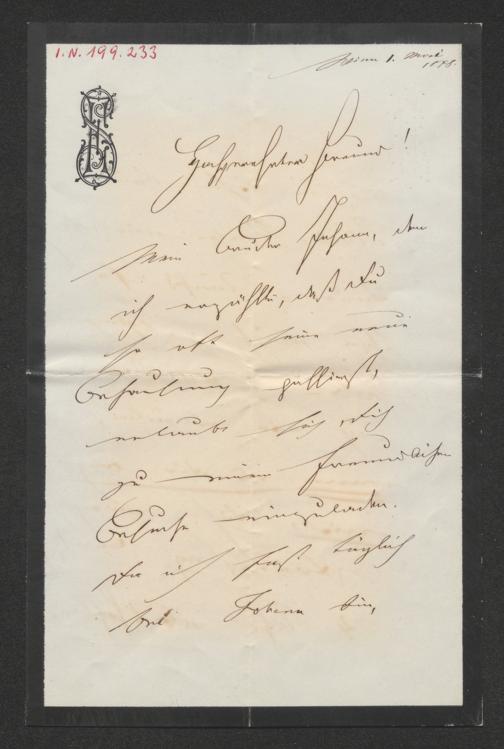 I.N. 199.233
Wien 1. März
1898.
Hochverehrter Freund!
Mein Bruder Johann, dem
ich erzählte, daß Du
so oft seine neue
Behausung
erlaubt sich, Dich
zu einem freundlichen
Besuche einzuladen.
Da ich fast täglich
bei Johann bin,